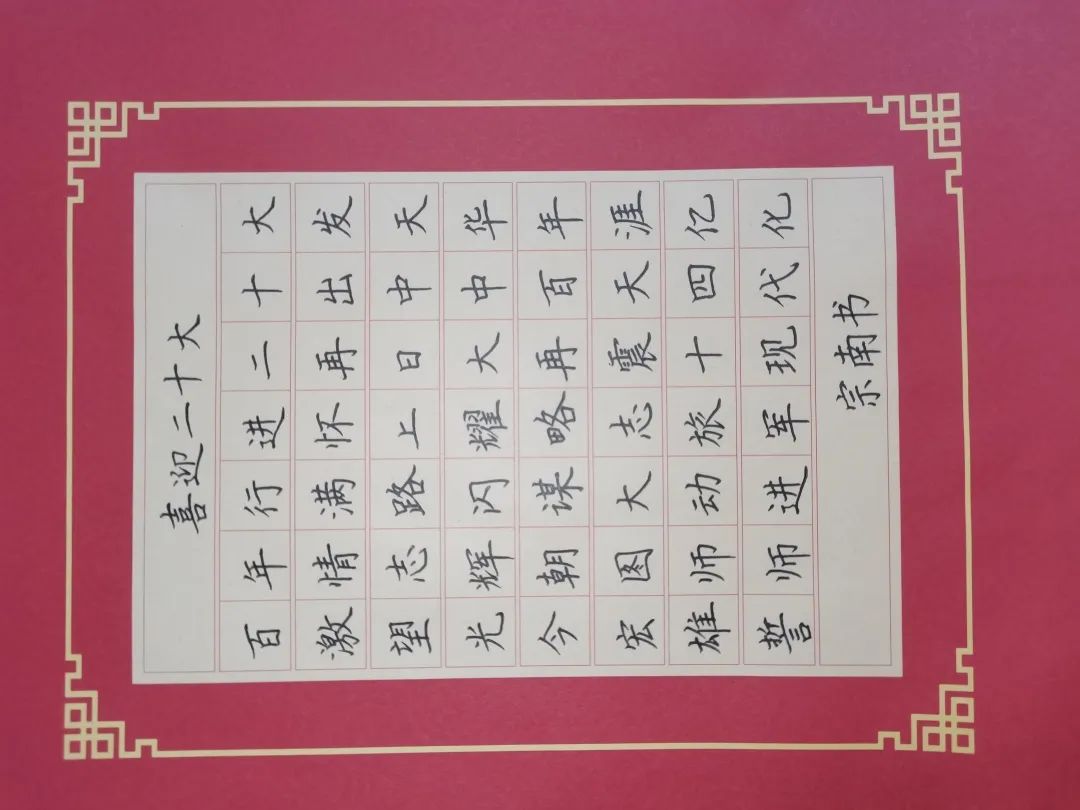 喜迎二十大
百年行进二十大
激情满怀再出发
望志路上日中天
光辉闪耀大中华
今朝谋略再百年
宏图大志震天涯
雄师动旅十四亿
誓师进军现代化
宗南书